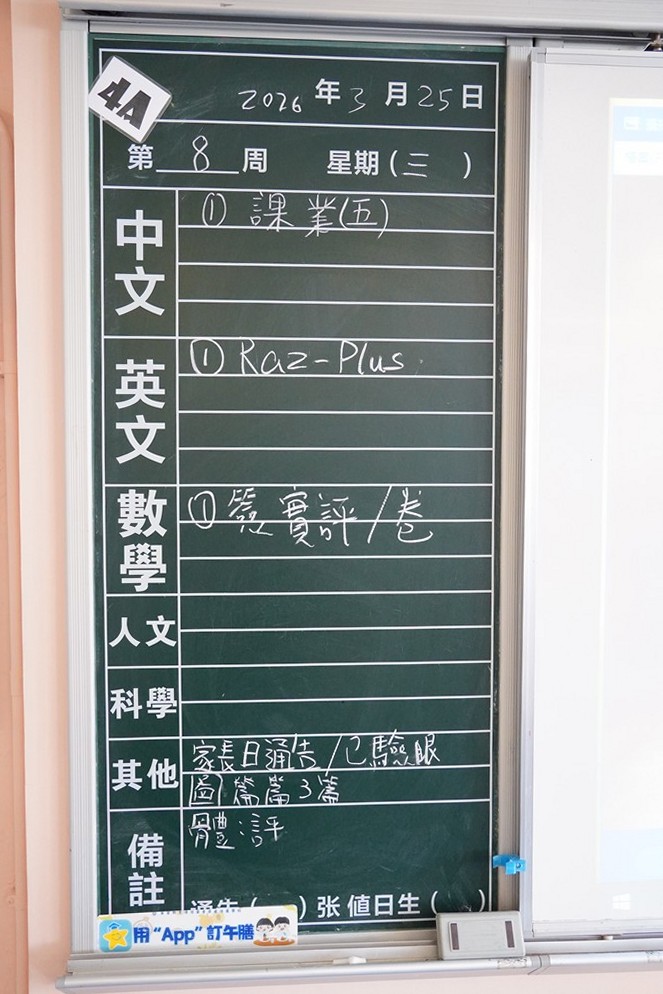 4A
2026 年 3 月 25 日
第 8 周 星期 (三)
中文
① 課業(五)
英文
① Raz-Plus
數學
① 簽實評/卷
人文
科學
其他
家長日通告/已驗眼
圖 篇篇 3 篇
備註
體:評
通告( )张 值日生( )
用 “App” 訂午膳